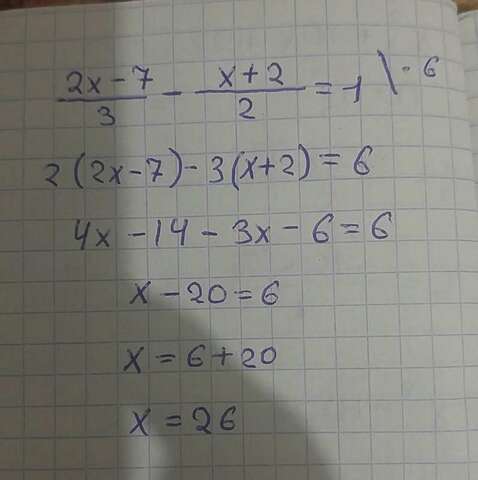 (2x-7)/3 - (x+2)/2 = 1 \ · 6
2(2x-7)-3(x+2)=6
4x-14-3x-6=6
x-20=6
x=6+20
x=26